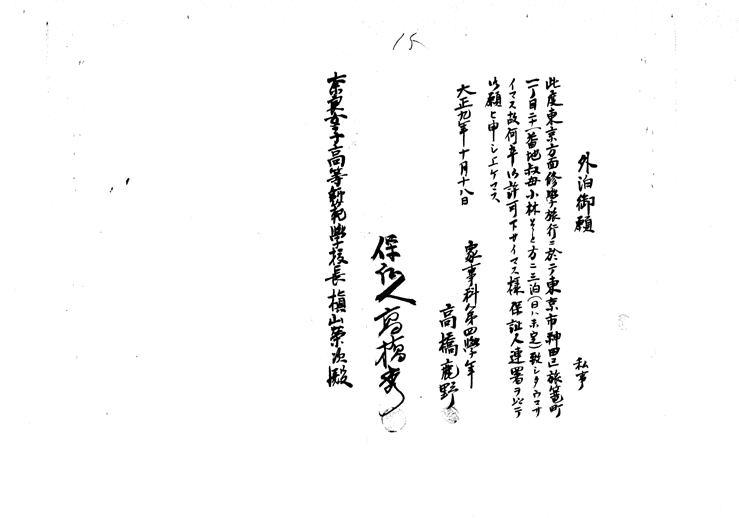 15
外泊御願
私事
此度東京方面修学旅行ニ於テ東京市神田区旅篭町
一丁目二十一番地叔母小林そと方ニ三泊(日ハ未定)致シタウゴザ
イマス故何卒御許可下サイマス様保証人連署ヲ以テ
御願ヒ申シ上ケマス
大正九年十月十八日
家事科第四学年
高橋鹿野
保証人高橋
奈良女子高等師範学校長槙山榮次殿